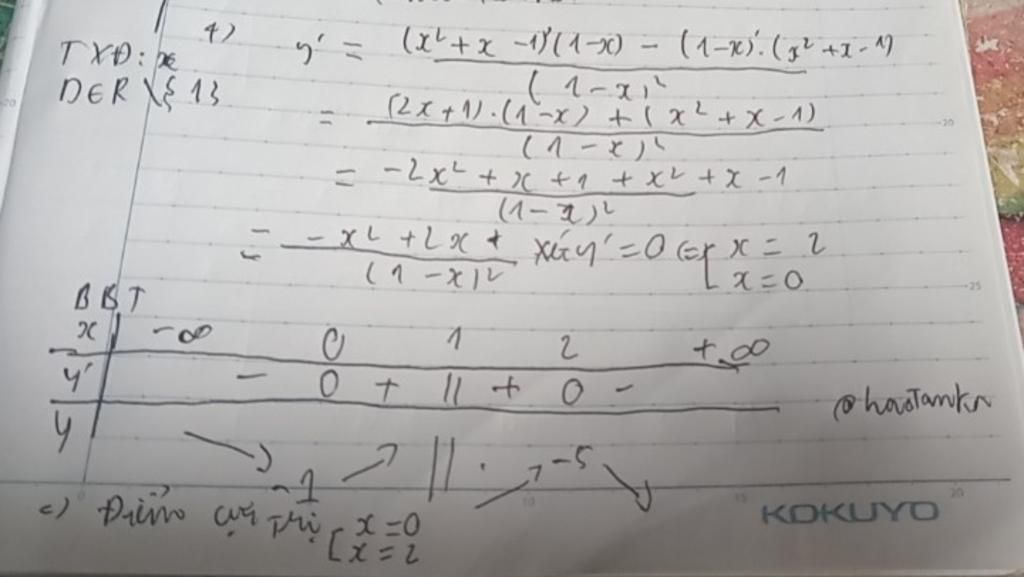 4) y' = (x² + x - 1)'(1-x) - (1-x)'.(x² + x - 1) / (1-x)²
TXĐ: x
D∈R \ { 1}
= (2x+1).(1-x) + (x² + x - 1) / (1-x)²
= -2x² + x + 1 + x² + x - 1 / (1-x)²
= -x² + 2x + / (1-x)² xét y' = 0 ⇔ [ x = 2
x = 0
BBT
x -∞ 0 1 2 +∞
y' - 0 + || + 0 -
@haoTamkn
y -1 || -5
c) Điểm cực trị [ x = 0
x = 2
KOKUYO